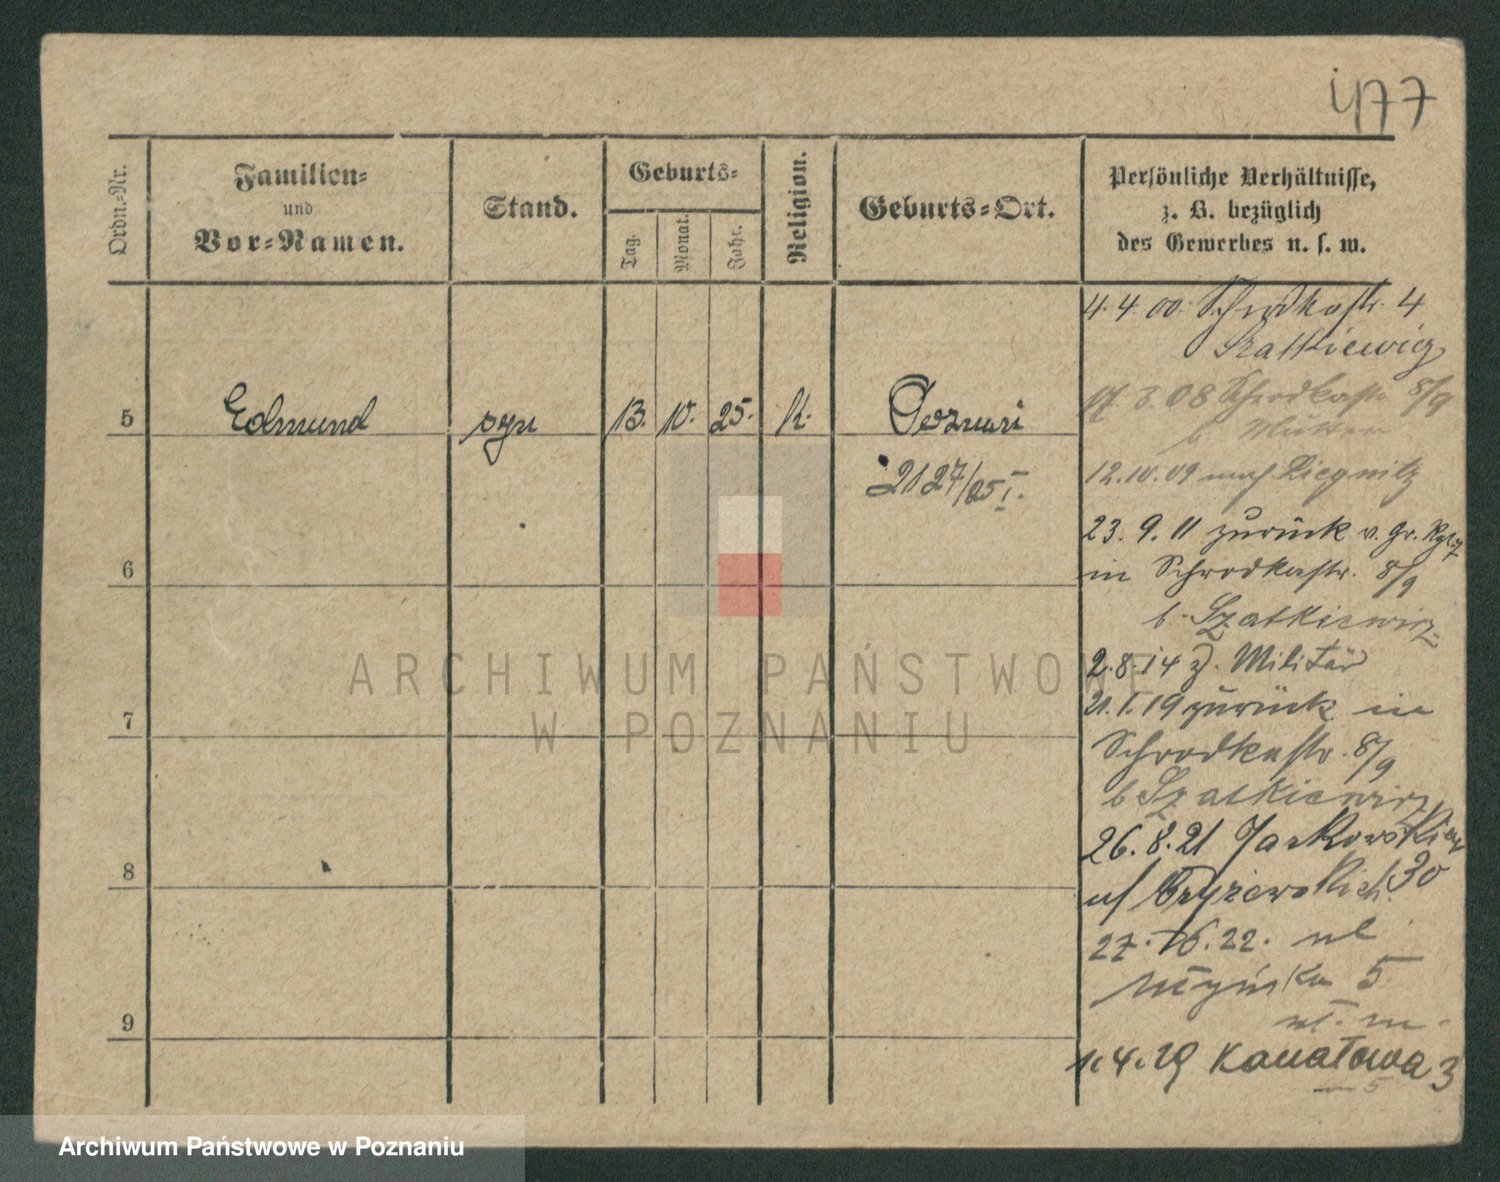 477
Ordn.-Nr.
Familien-
und
Vor-Namen.
Stand.
Geburts-
Tag.
Monat.
Jahr.
Religion.
Geburts-Ort.
Persönliche Verhältnisse,
z. B. bezüglich
des Gewerbes u. s. w.
4. 4. 00. Schrodkastr. 4
Szatkiewicz
3. 08 Schrodkastr. 8/9
b Mutter
12. 10. 09 nach Liegnitz
23. 9. 11 zurück v.
in Schrodkastr. 8/9
b. Szatkiewicz
2. 8. 14 z. Militär
21. I. 19 zurück in
Schrodkastr. 8/9
b Szatkiewicz
26. 8. 21
30
22. ul
5
1. 4. 29 Kanałowa 3
5
5 Edmund syn 13. 10. 25. k. Poznań
2127/25 I.
6
7
8
9
ARCHIWUM PAŃSTWOWE
W POZNANIU
Archiwum Państwowe w Poznaniu